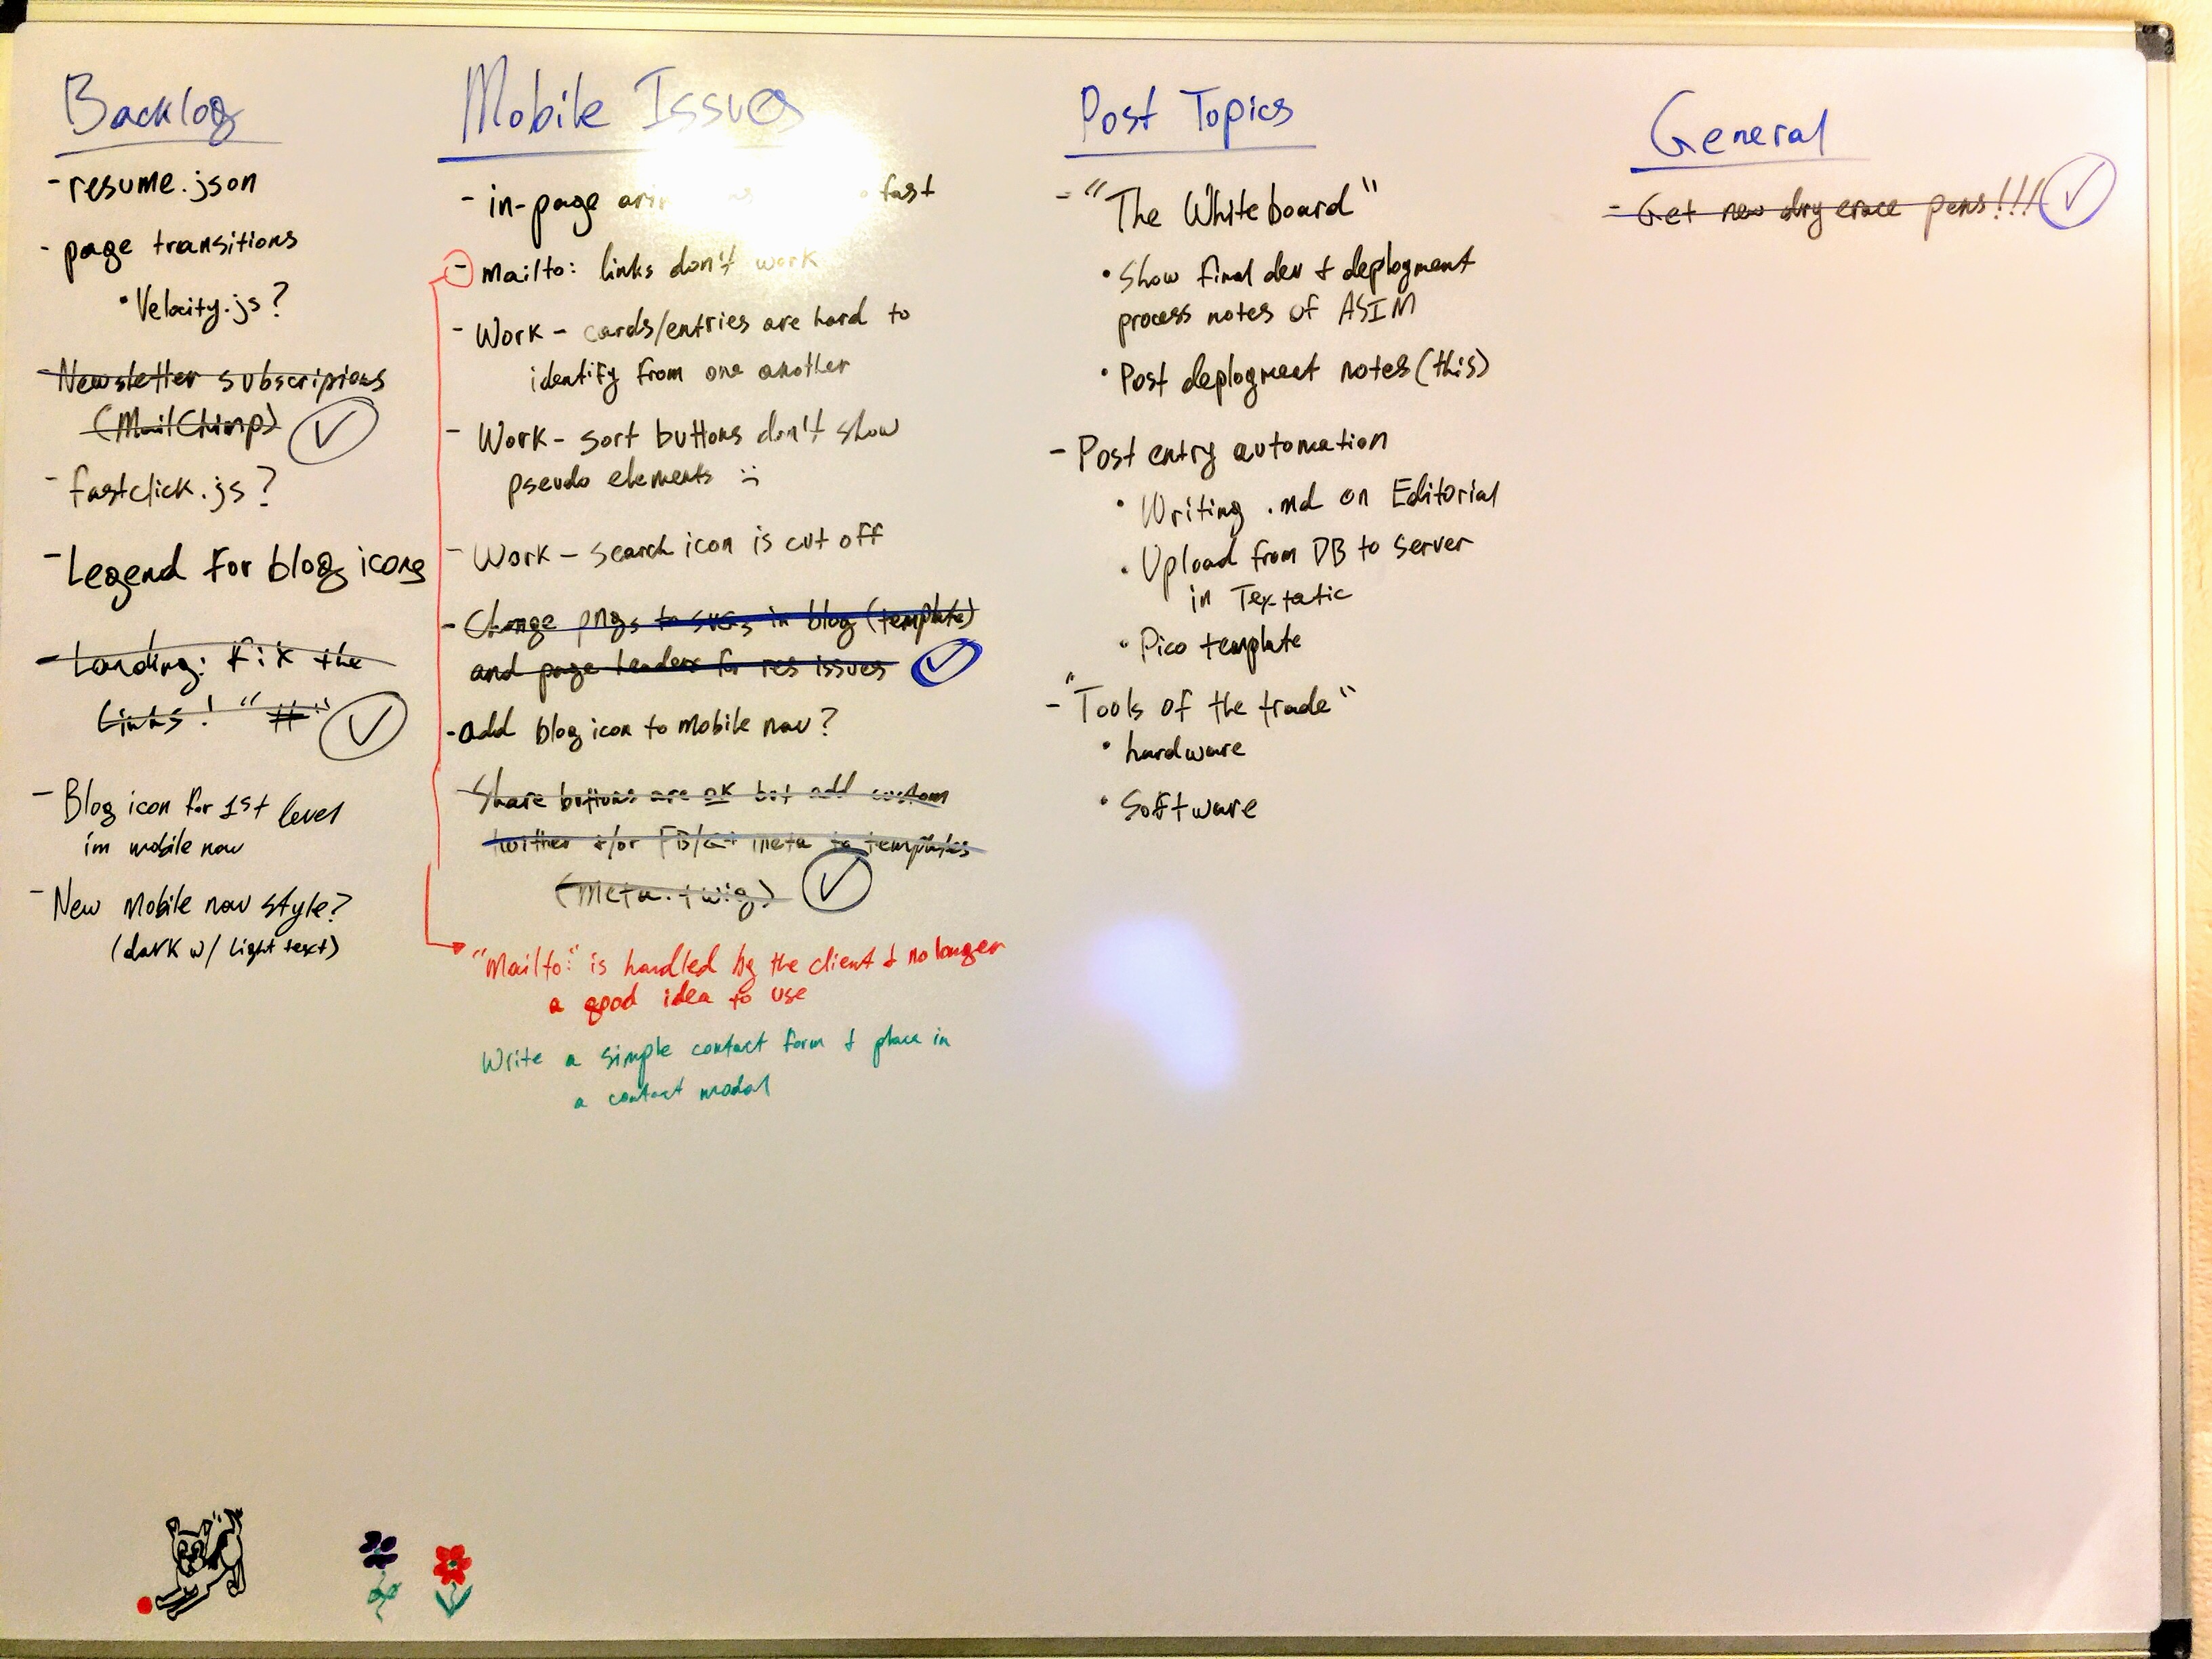 Backlog
- resume.json
- page transitions
• Velocity.js?
- Newsletter subscriptions
(MailChimp)
- fastclick.js?
- Legend for blog icons
- Landing: fix the
links! "#"
- Blog icon for 1st level
in mobile nav
- New Mobile nav style?
(dark w/ light text)
Mobile Issues
- in-page fast
- mailto: links don't work
- Work - cards/entries are hard to
identify from one another
- Work - sort buttons don't show
pseudo elements :(
- Work - search icon is cut off
- Change pngs to svgs in blog (template)
and page headers for res issues
- add blog icon to mobile nav?
- Share buttons are ok but add custom
twitter +/or FB/G+ meta to templates
(meta.twig)
"Mailto:" is handled by the client + no longer
a good idea to use
Write a simple contact form + place in
a contact modal
Post Topics
- "The Whiteboard"
• Show final dev + deployment
process notes of ASIM
• Post deployment notes (this)
- Post entry automation
• Writing .md on Editorial
• Upload from DB to server
in Textatic
• Pico template
- "Tools of the trade"
• hardware
• Software
General
- Get new dry erace pens!!!